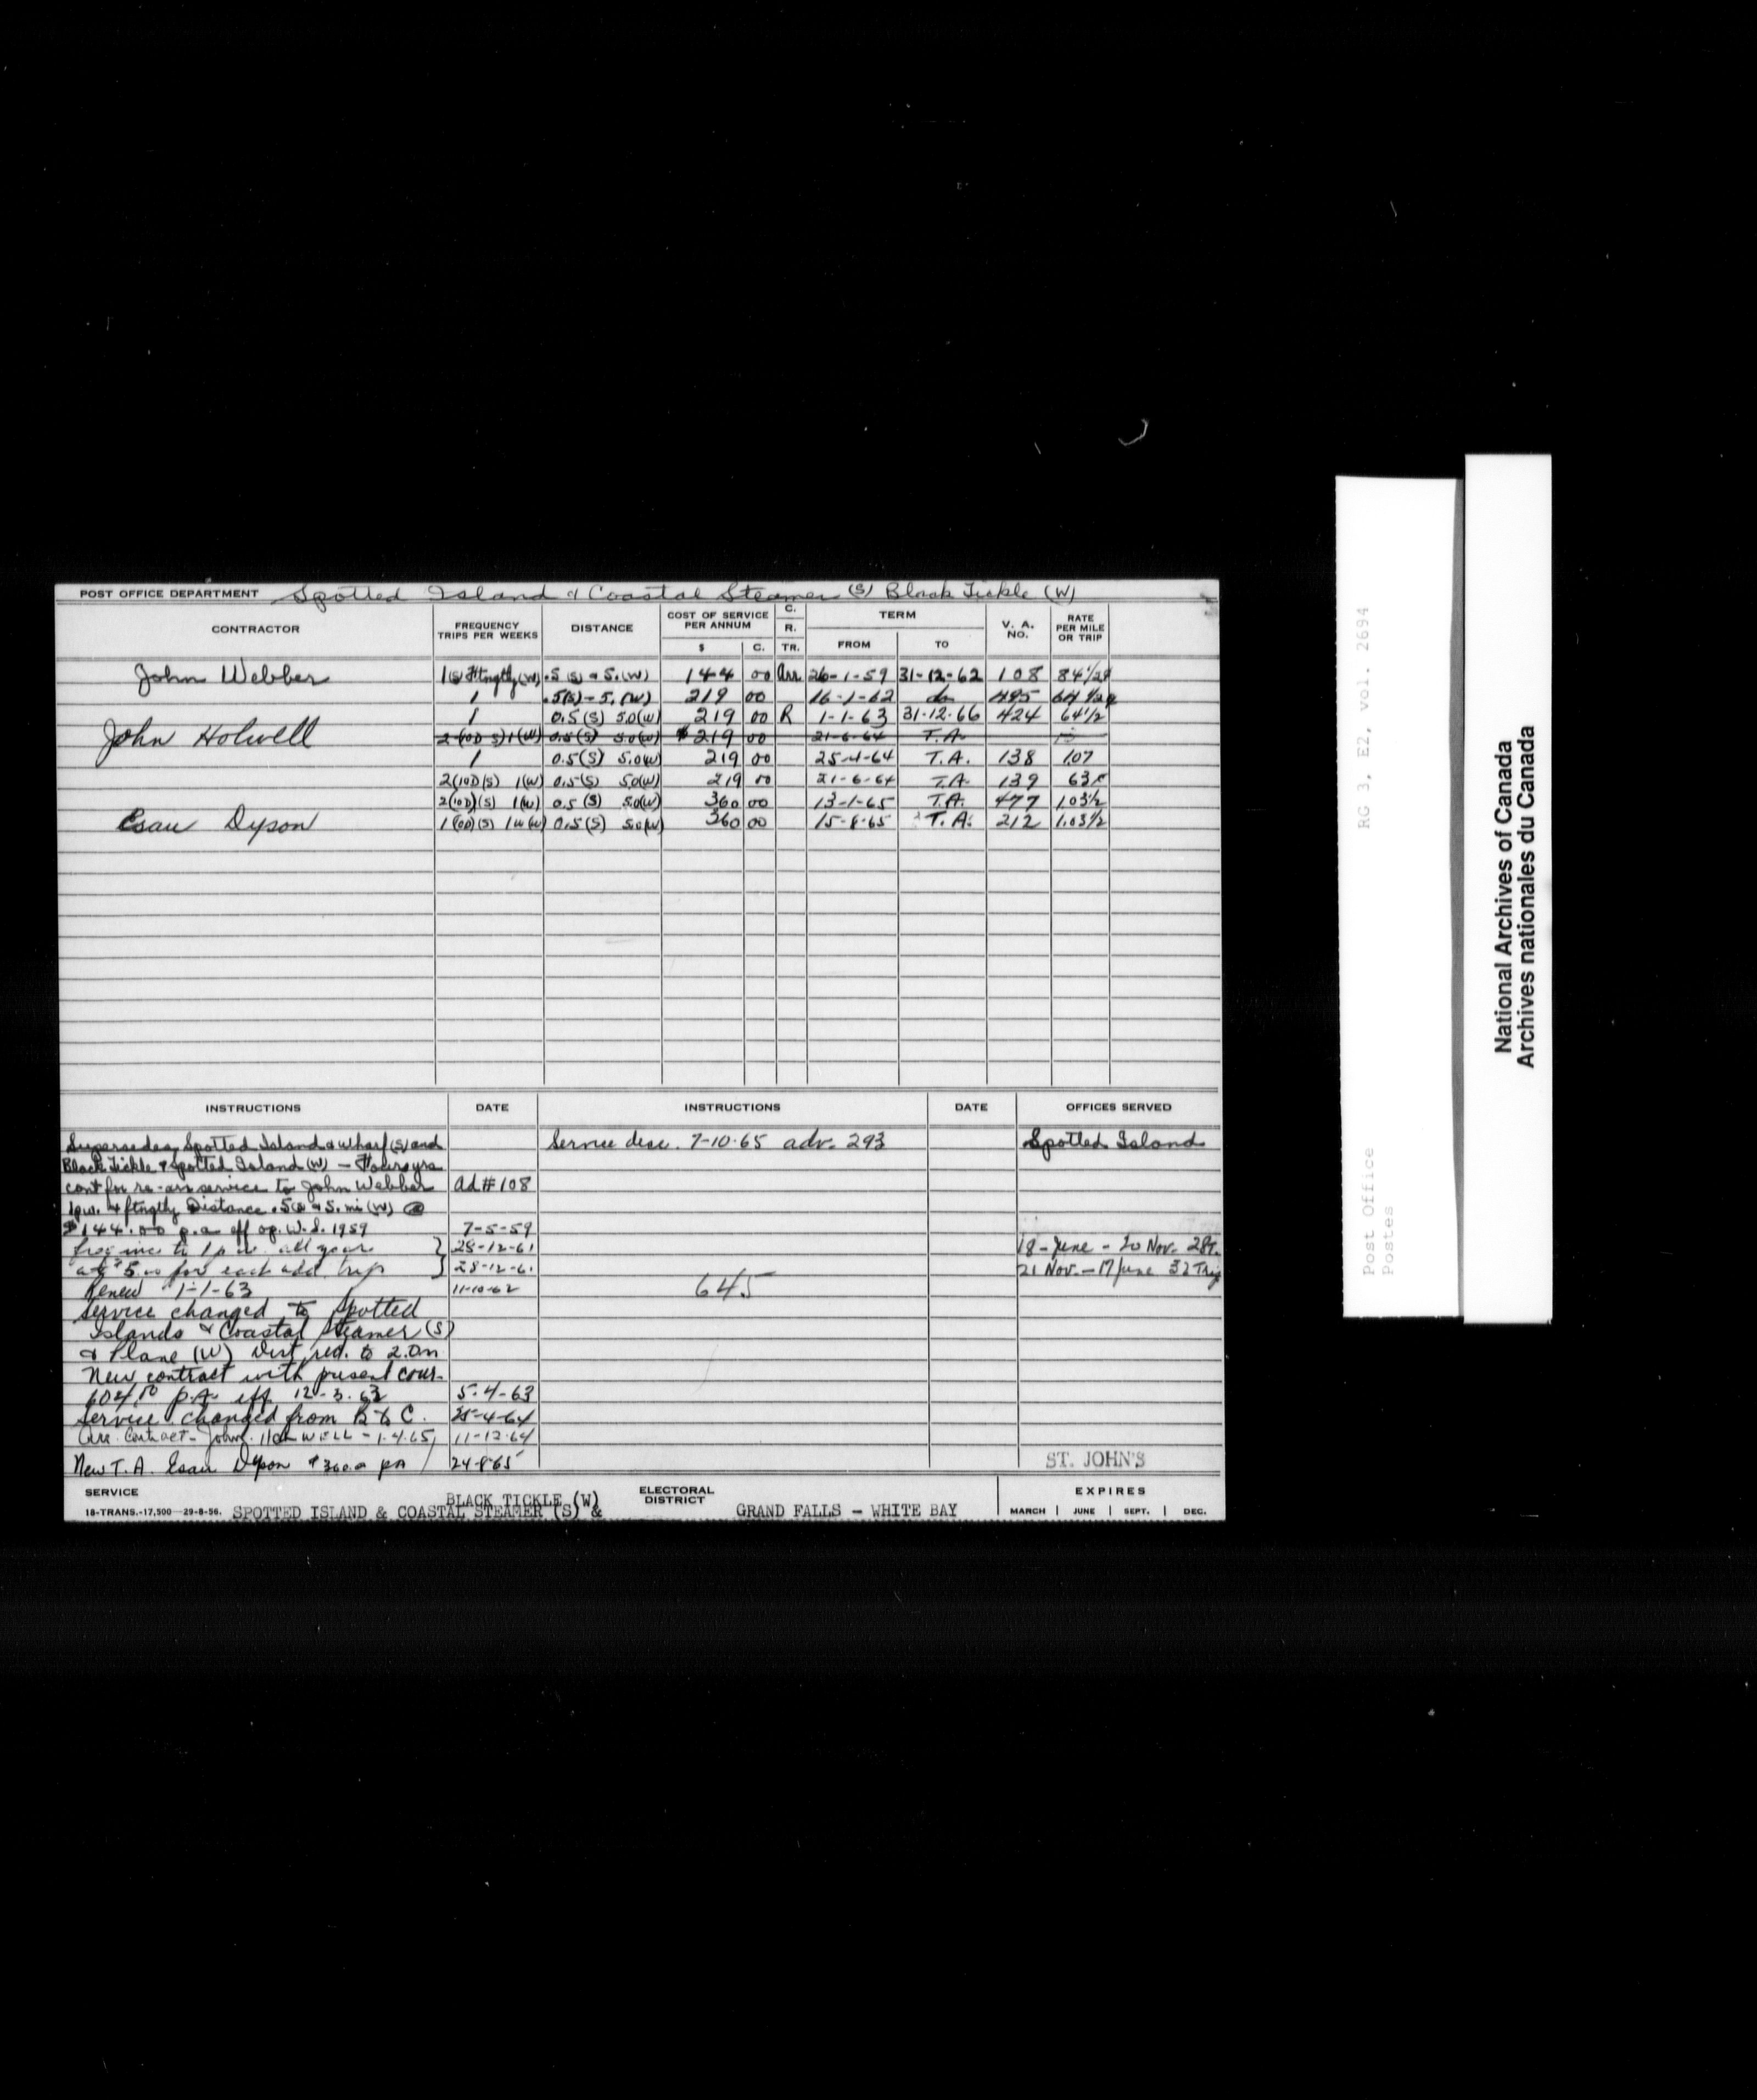 POST OFFICE DEPARTMENT Spotted Island & Coastal Steamer (S) Black Tickle (W)
CONTRACTOR FREQUENCY TRIPS PER WEEKS DISTANCE COST OF SERVICE PER ANNUM $ C. C. R. TR. TERM FROM TO V. A. NO. RATE PER MILE OR TRIP
John Webber 1(s) Ftngtly (w) .5 (s) & 5. (W) 144 00 Arr. 26-1-59 31-12-62 108 84 1/2¢
1 .5(s) - 5. (W) 219 00 16-1-62 do 495 64 1/2¢
1 0.5 (S) 5.0(W) 219 00 R 1-1-63 31-12-66 424 64 1/2
John Holwell 2 (OD S) 1(W) 0.5 (S) 5.0(W) $219 00 21-6-64 T.A.
1 0.5(S) 5.0(W) 219 00 25-4-64 T.A. 138 107
2(10D)(S) 1(W) 0.5(S) 5.0(W) 219 00 21-6-64 T.A. 139 63
2(10D)(S) 1(W) 0.5 (S) 5.0(W) 360 00 13-1-65 T.A. 477 1.03 1/2
Esau Dyson 1 (OD)(S) 1w(w) 0.5(S) 5.0(W) 360 00 15-8-65 T.A. 212 1.03 1/2
INSTRUCTIONS DATE INSTRUCTIONS DATE OFFICES SERVED
Supersedes Spotted Island & Wharf (S) and Service disc. 7-10-65 adv. 293 Spotted Island
Black Tickle & Spotted Island (W) – Four yrs
cont for re-arr service to John Webber Ad # 108
1pw. & ftngtly Distance .5(s) & 5. mi (W) @
$144.00 p.a eff op. W.S. 1959 7-5-59
freq inc to 1 p w. all year 28-12-61 18-June - 20 Nov. 28T.
at $5.00 for each add. trip 28-12-61 21 Nov. - 17 June 32 Trip
Renew 1-1-63 11-10-62 645
Service changed to Spotted
Islands & Coastal Steamer (S)
& Plane (W) Dist red. to 2.0m
New contract with present cour-
604.50 p.a. eff 12-3-63 5-4-63
Service changed from B to C. 25-4-64
Arr. Contract - John HOLWELL - 1-4-65 11-12-64
New T.A. Esau Dyson $360.00 pa 24-8-65 ST. JOHN'S
SERVICE BLACK TICKLE (W) ELECTORAL DISTRICT EXPIRES
18-TRANS.-17,500—29-8-56. SPOTTED ISLAND & COASTAL STEAMER (S) & GRAND FALLS - WHITE BAY MARCH | JUNE | SEPT. | DEC.
RG 3, E2, vol. 2694
Post Office
Postes
National Archives of Canada
Archives nationales du Canada